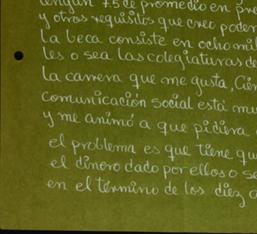 tengan +5 de promedio en pre
y otros requisitos que creo poder
La beca consiste en ocho mil
les o sea las colegiaturas de
la carrera que me gusta, Cien
comunicación social está mu
y me animó a que pidiera
el problema es que tiene qu
el dinero dado por ellos o se
en el término de los diez a